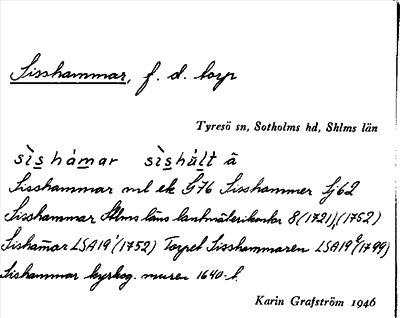 Sisshammar, f. d. torp
Tyresö sn, Sotholms hd, Shlms län
sìs̲ hám̲ar sìs̲hál̲t â
Sisshammar vid ek G76 Sisshammer Sj62
Sisshammar Sthlms läns lantmäterikontor 8 (1721), 1 (1752)
Sisham̄ar LSA 19¹ (1752) Torpet Sisshammaren LSA 19² (1799)
Sishammar kyrkog. 1640-t.
Karin Grafström 1946